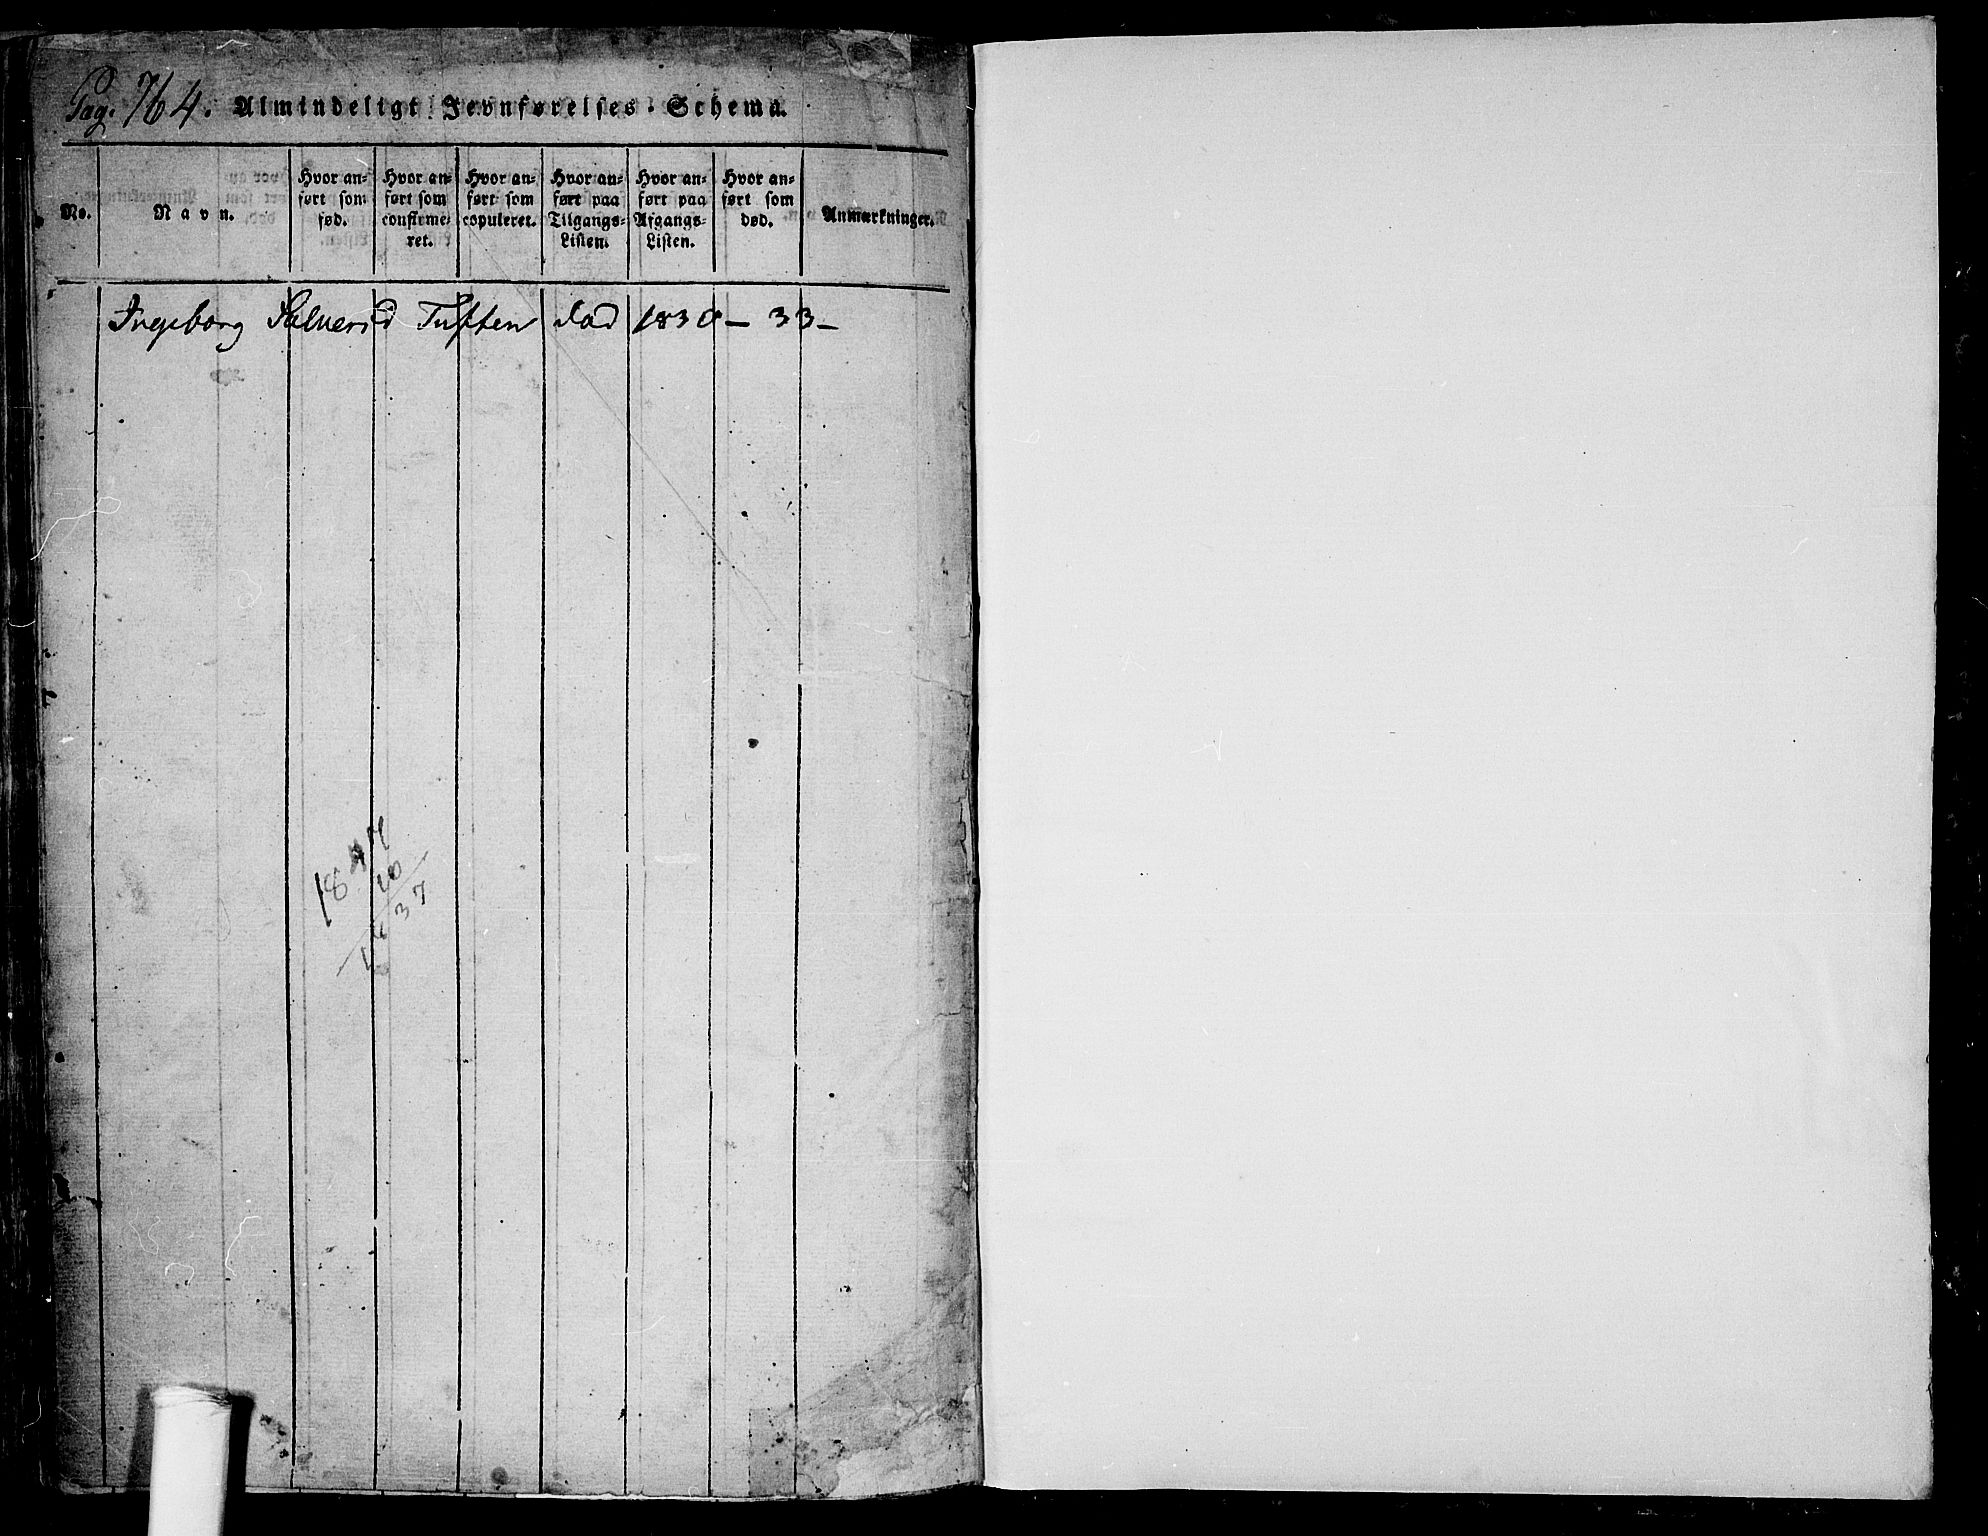 Pag. 764. Almindeligt Jevnførelses-Schema.
No.
Navn.
Hvor an-
ført som
fød.
Hvor an-
ført som
confirme-
ret.
Hvor an-
ført som
copuleret.
Hvor an-
ført paa
Tilgangs-
Listen.
Hvor an-
ført paa
Afgangs-
Listen.
Hvor an-
ført som
død.
Anmærkninger.
Ingeborg Halversd Tuften død 1830 – 33 –
1847
10
37